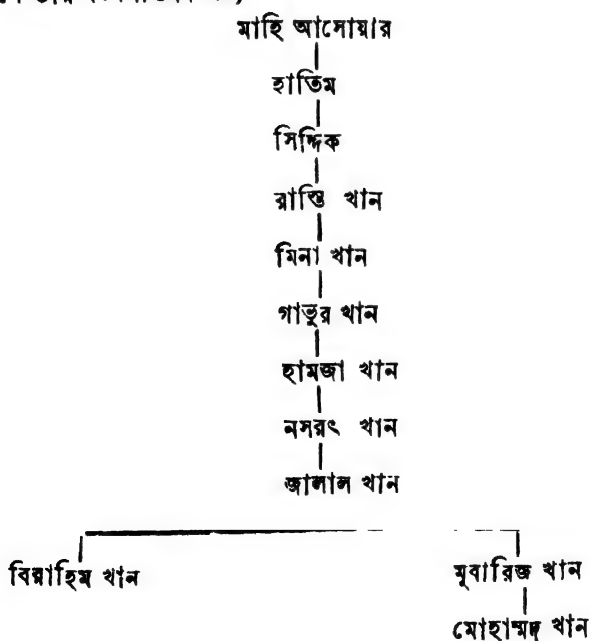 মাহি আসোয়ার
হাতিম
সিদ্দিক
রাস্তি খান
মিনা খান
গাভুর খান
হামজা খান
নসরৎ খান
জালাল খান
বিরাহিম খান মুবারিজ খান
মোহাম্মদ খান